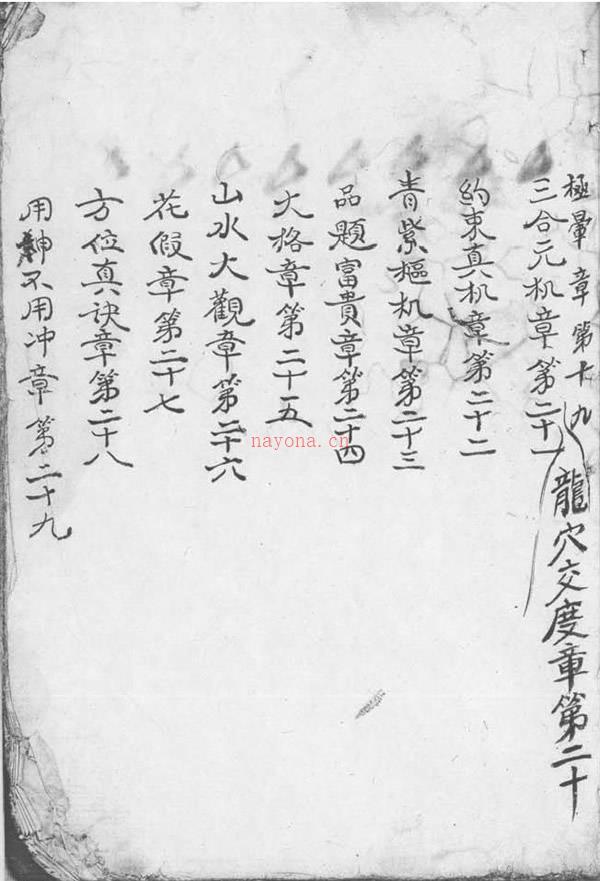 極暈章第十九
龍穴交度章第二十
三合元机章第二十一
約束真机章第二十二
青紫樞机章第二十三
品題富貴章第二十四
大格章第二十五
山水大觀章第二十六
花假章第二十七
方位真诀章第二十八
用神不用冲章第二十九
nayona.cn